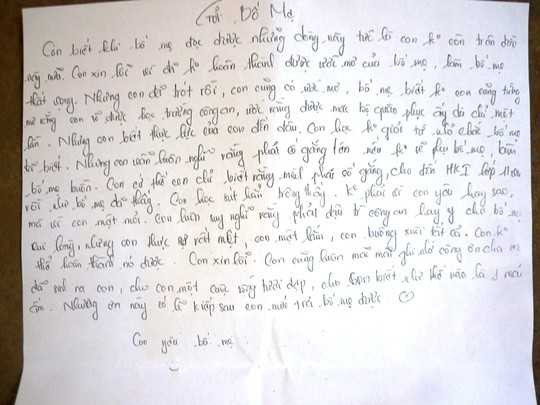 Gửi Bố Mẹ
Con biết khi bố mẹ đọc được những dòng này tức là con k° còn trên đời
này nữa. Con xin lỗi vì đã k° hoàn thành được ước mơ của bố mẹ, làm bố mẹ
thất vọng. Nhưng con đã trót rồi, con cũng có ước mơ, bố mẹ biết k° con cũng từng
mơ rằng con sẽ được học trường công an, ước rằng được mặc bộ quân phục ấy dù chỉ một
lần. Nhưng con biết thực lực của con đến đâu. Con học k° giỏi từ nhỏ chắc bố mẹ
đã biết. Nhưng con vẫn luôn nghĩ rằng phải cố gắng lên nếu k° sẽ phụ bố mẹ, làm
bố mẹ buồn. Con có thể con chỉ biết rằng mình phải cố gắng, cho đến HKI lớp 11
rồi như bố mẹ đã thấy. Con học sút hẳn trông thấy. k° phải vì con yêu hay sao
mà vì con mệt mỏi. Con luôn suy nghĩ rằng phải đậu trường công an hay y cho bố mẹ
vui lòng, nhưng con thực sự rất mệt, con mệt lắm, con buông xuôi tất cả. Con k°
thể hoàn thành nó được. Con xin lỗi. Con cũng luôn mãi mãi ghi nhớ công ơn cha mẹ
đã sinh ra con, cho con một cuộc sống tươi đẹp, cho con biết như thế nào là 1 mái
ấm. Nhưng ơn này có lẽ kiếp sau con mới trả bố mẹ được
Con yêu bố mẹ